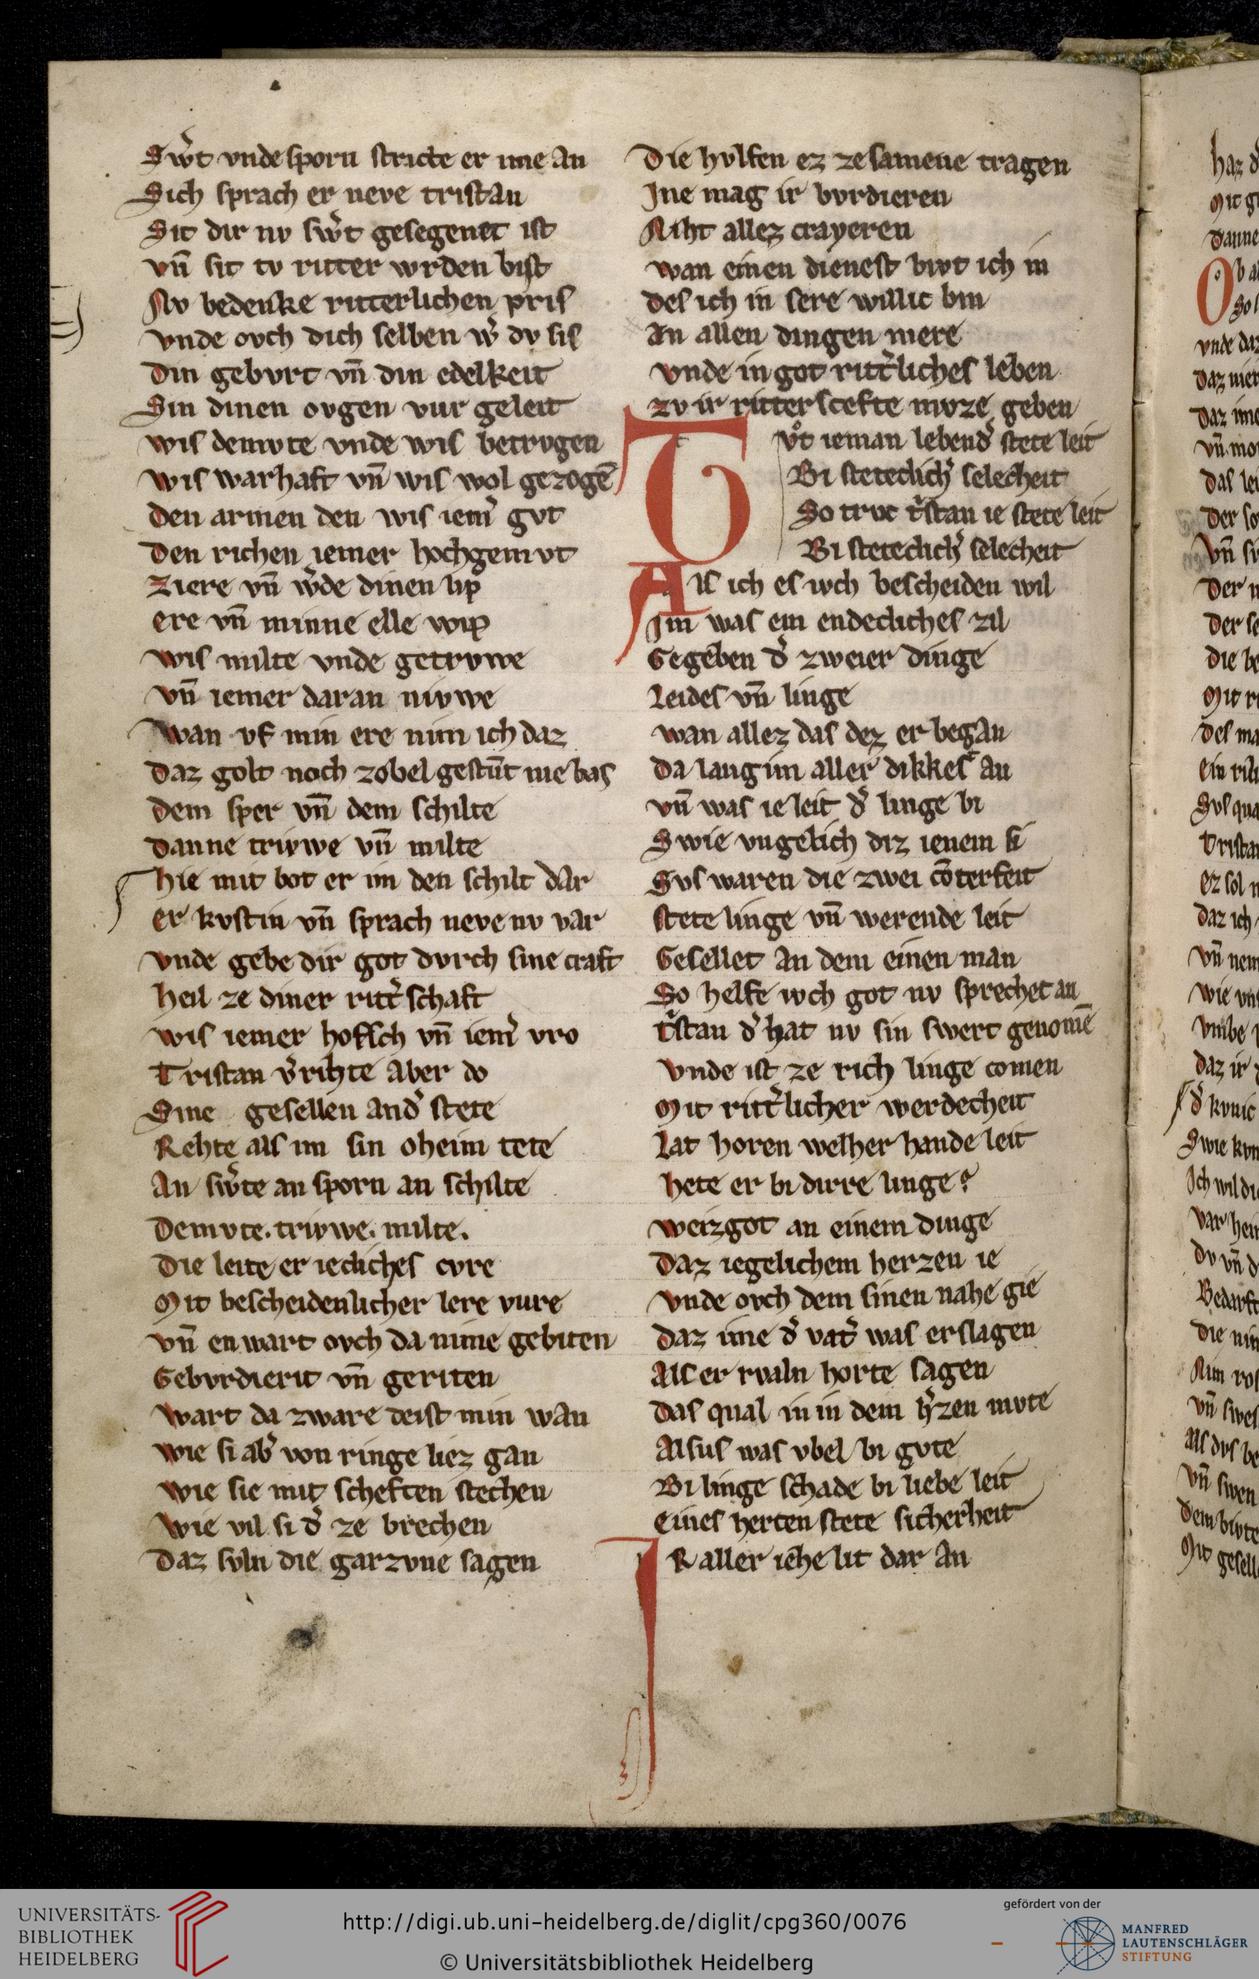 Sw̾t vnde sporn stricte er ime an
Sich sprach er neve tristan
Sit dir nv sw̾t gesegenet ist
vn̄ sit tv ritter wrden bist
Nv bedenke ritterlichen pris
vnde ovch dich selben w̾ dv sis
Din gebvrt vn̄ din edelkeit
Sin dinen ovgen vur geleit
wis demvte vnde wis betrogen
wis warhaft vn̄ wis wol gezogē
Den armen den wis iem̾ gvt
Den richen iemer hochgemvt
Ziere vn̄ w̾de dinen lip
ere vn̄ minne elle wip
wis milte vnde getrvwe
vn̄ iemer daran nivwe
wan vf min ere nim ich daz
Daz golt noch zobel gestūt nie bas
Dem sper vn̄ dem schilte
Danne trivwe vn̄ milte
hie mit bot er im den schilt dar
er kvstin vn̄ sprach neve nv var
vnde gebe dir got dvrch sine craft
heil ze diner ritt̾schaft
wis iemer hofsch vn̄ iem̾ vro
Tristan v̾rihte aber do
Sine gesellen and̾ stete
Rehte als im sin oheim tete
An sw̾te an sporn an schilte
Demvte. trivwe. milte.
Die leite er iecliches cvre
Mit bescheidenlicher lere vure
vn̄ en wart ovch da nime gebiten
Gebvrdierit vn̄ geriten
wart da zware deist min wan
wie si ab̾ von ringe liez gan
wie sie mit scheften stechen
wie vil si d̾ ze brechen
Daz svln die garzvne sagen
Die hvlfen ez ze samene tragen
Ine mag ir bvrdieren
Niht allez crayeren
wan einen dienest bivt ich in
des ich in sere willic bin
An allen dingen mere
vnde in got ritt̾liches leben
zv ir ritterscefte mvze geben
Tvͦt ieman lebend̾ stete leit
Bi steteclich̾ selecheit
So trvc t̾stan ie stete leit
Bi steteclich̾ selecheit
Als ich es ivch bescheiden wil
Im was ein endecliches zil
Gegeben d̾ zweier dinge
Leides vn̄ linge
wan allez das dez er began
Da lang im aller dikkest an
vn̄ was ie leit d̾ linge bi
Swie vngelich diz ienem si
Svs waren die zwei cōterfeit
stete linge vn̄ werende leit
Gesellet an dem einen man
So helfe ivch got nv sprechet an
t̾stan d̾ hat nv sin swert genomē
vnde ist ze rich linge comen
Mit ritt̾licher werdecheit
Lat horen welher hande leit
hete er bi dirre linge?
weizgot an einem dinge
Daz iegelichem herzen ie
vnde ovch dem sinen nahe gie
Daz ime d̾ vat̾ was erslagen
Als er rvaln horte sagen
Das qual in in dem h̾zen mvte
Alsus was vbel bi gvte
Bi linge schade bi liebe leit
Eines herten stete sicherheit
IR aller iēhe lit dar an
UNIVERSITÄTS-
BIBLIOTHEK
HEIDELBERG
http://digi.ub.uni-heidelberg.de/diglit/cpg360/0076
© Universitätsbibliothek Heidelberg
gefördert von der
MANFRED
LAUTENSCHLÄGER
STIFTUNG